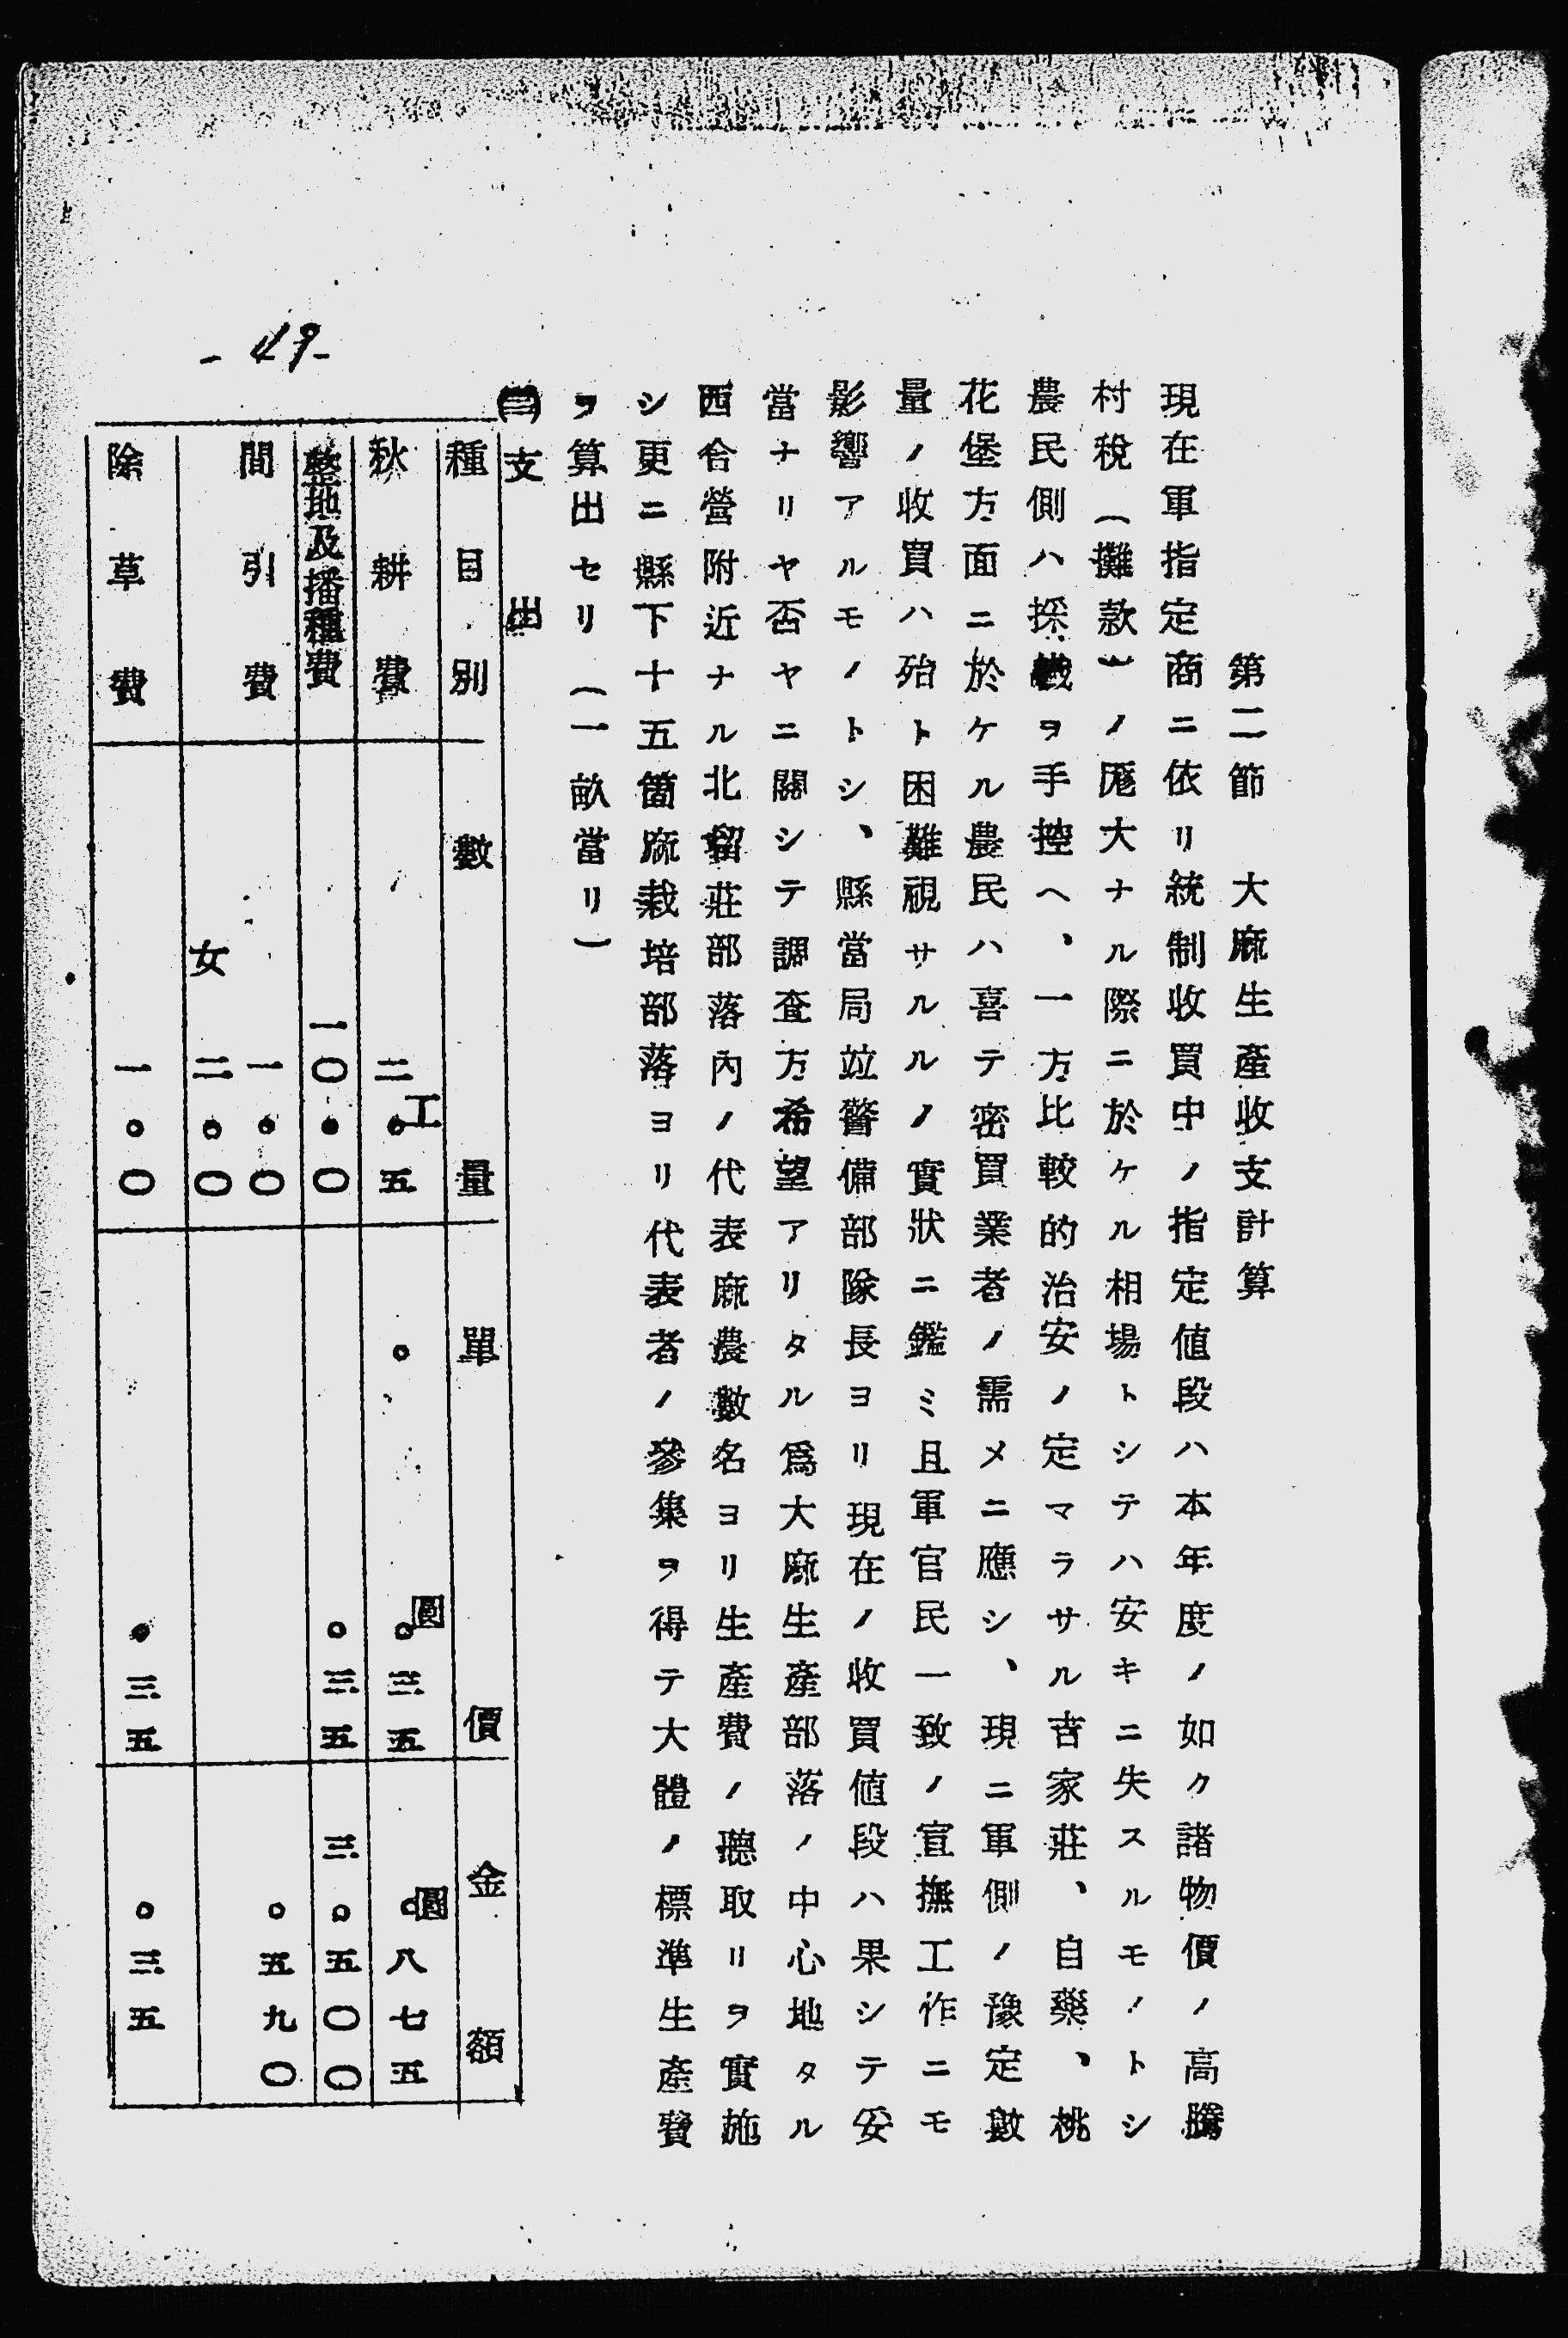 第二節　大麻生產收支計算
現在軍指定商ニ依リ統制收買中ノ指定値段ハ本年度ノ如ク諸物價ノ高騰
村稅（攤款）ノ厖大ナル際ニ於ケル相場トシテハ安キニ失スルモノトシ
農民側ハ採纎ヲ手控ヘ、一方比較的治安ノ定マラサル吉家莊、自樂、桃
花堡方面ニ於ケル農民ハ喜テ密買業者ノ需メニ應シ、現ニ軍側ノ豫定數
量ノ收買ハ殆ト困難視サルルノ實狀ニ鑑ミ且軍官民一致ノ宣撫工作ニモ
影響アルモノトシ、縣當局竝警備部隊長ヨリ現在ノ收買値段ハ果シテ妥
當ナリヤ否ヤニ關シテ調査方希望アリタル爲大麻生產部落ノ中心地タル
西合營附近ナル北留莊部落內ノ代表麻農數名ヨリ生產費ノ聽取リヲ實施
シ更ニ縣下十五箇麻栽培部落ヨリ代表者ノ參集ヲ得テ大體ノ標準生產費
ヲ算出セリ（一畝當リ）
支出
種目別　數量　單價　金額
秋耕費　二・五工　〇・三五圓　〇・八七五圓
整地及播種費　一〇・〇　〇・三五　三・五〇〇
間引費　一・〇　女二・〇　〇・五九〇
除草費　一・〇　・三五　〇・三五
-49-